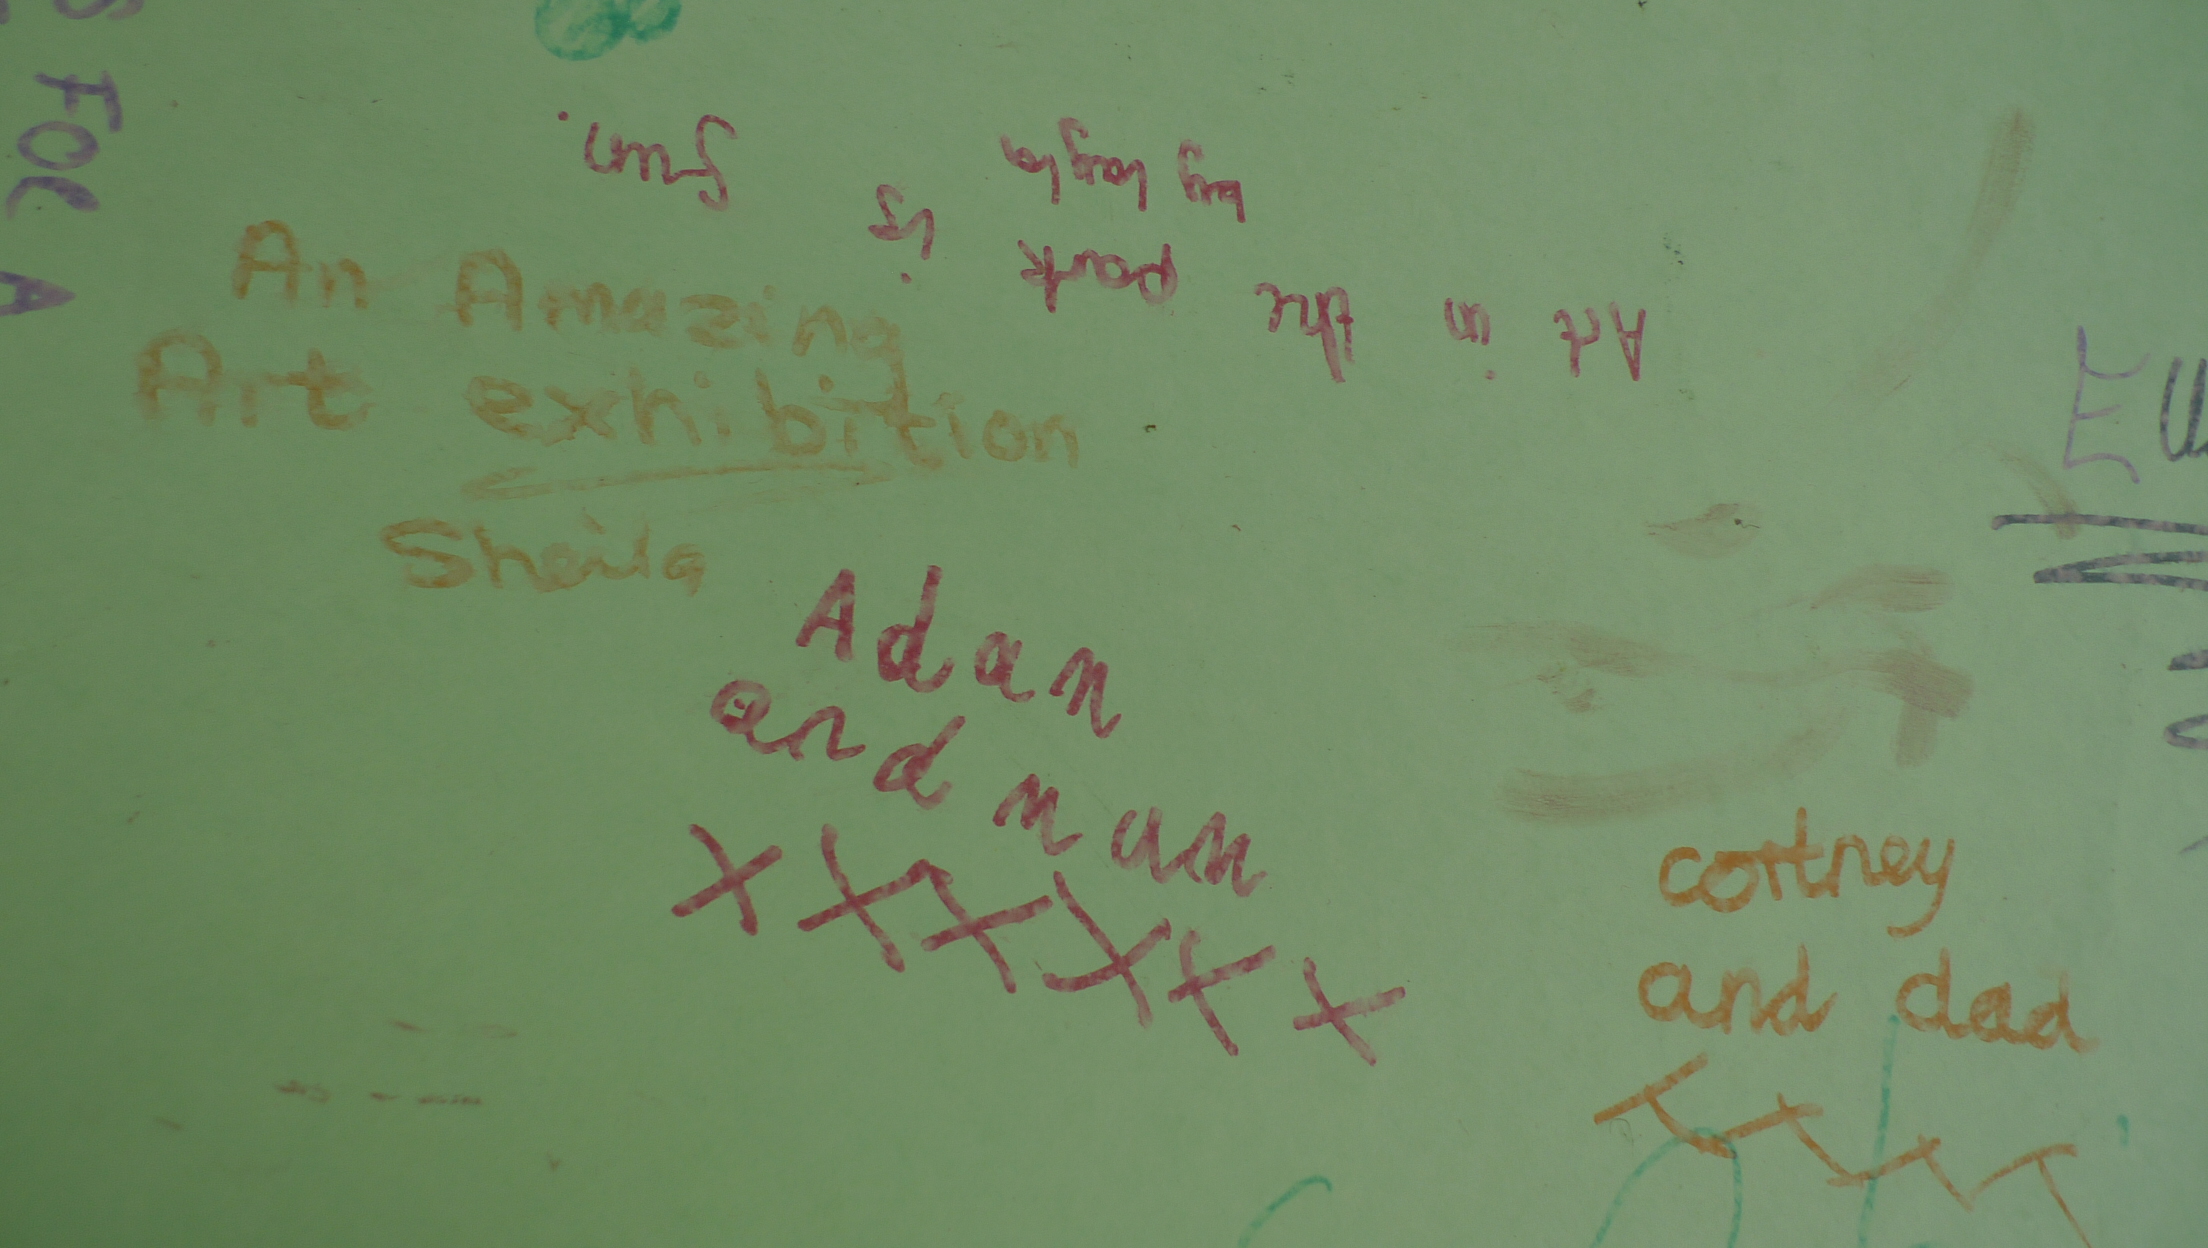 FOR A
An Amazing
Art exhibition
Sheila
Art in the park is fun.
by
Adan
and nan
XXXXXX
cortney
and dad